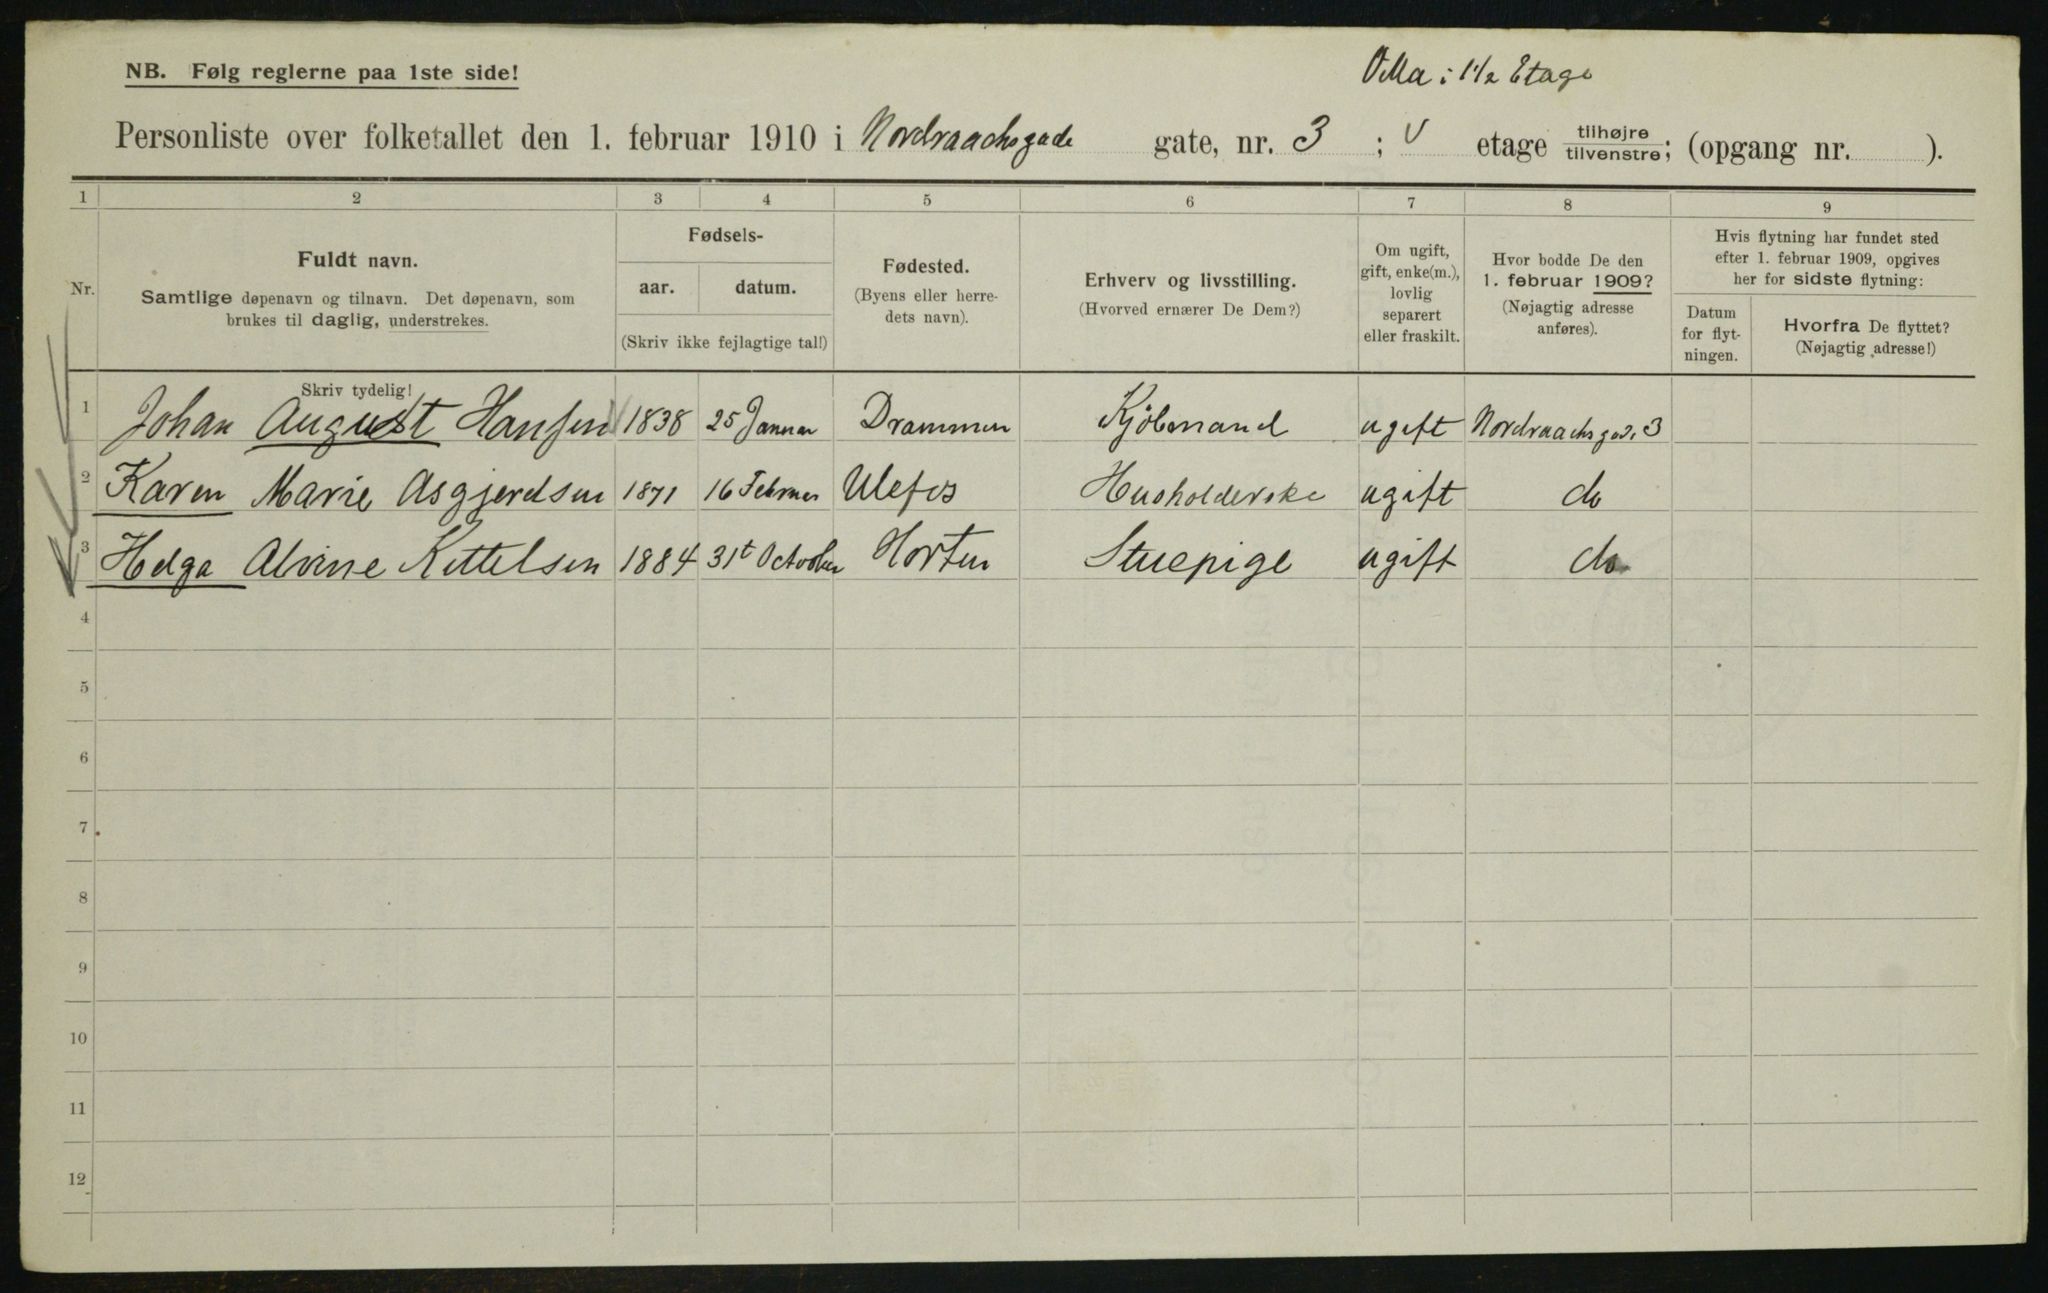 Villa i 1 1/2 Etage
NB. Følg reglerne paa 1ste side!
Personliste over folketallet den 1. februar 1910 i Nordraachsgade gate, nr. 3 ; V etage tilhøjre/tilvenstre; (opgang nr. ).
1 2 3 4 5 6 7 8 9
Nr.
Fuldt navn.
Samtlige døpenavn og tilnavn. Det døpenavn, som
brukes til daglig, understrekes.
Fødsels-
aar. datum.
(Skriv ikke fejlagtige tal!)
Fødested.
(Byens eller herre-
dets navn).
Erhverv og livsstilling.
(Hvorved ernærer De Dem?)
Om ugift,
gift, enke(m.),
lovlig
separert
eller fraskilt.
Hvor bodde De den
1. februar 1909?
(Nøjagtig adresse
anføres).
Hvis flytning har fundet sted
efter 1. februar 1909, opgives
her for sidste flytning:
Datum
for flyt-
ningen.
Hvorfra De flyttet?
(Nøjagtig adresse!)
Skriv tydelig!
1 Johan August Hansen 1838 25 Januar Drammen Kjøbmand ugift Nordraachs gad. 3
2 Karen Marie Asgjerdsen 1871 16 Februar Ulefos Husholderske ugift do
3 Helga Alvine Kittelsen 1884 31t October Horten Stuepige ugift do
4
5
6
7
8
9
10
11
12